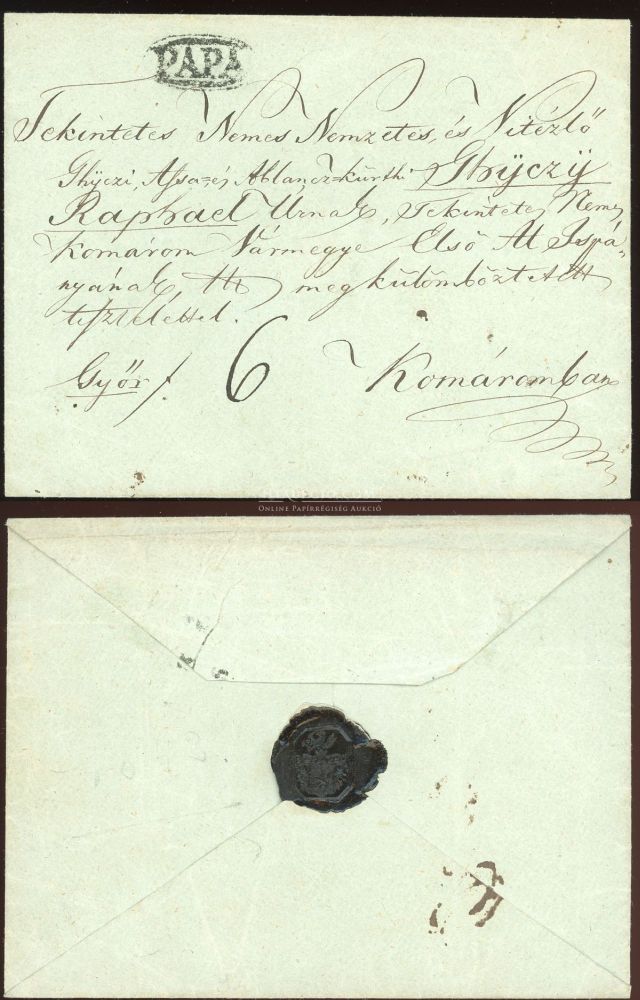 PAPA
Tekintetes Nemes Nemzetes, és Vitézlő
Ghÿczi, Assa=és Ablancz=kürthi Ghÿczÿ
Raphael Urnak, Tekintetes Nems
Komárom Vármegye Első Al Ispá=
nyának, tt megkülömböztetett
tisztelettel.
Győr /. 6 Komáromban
Online Papírrégiség Aukció